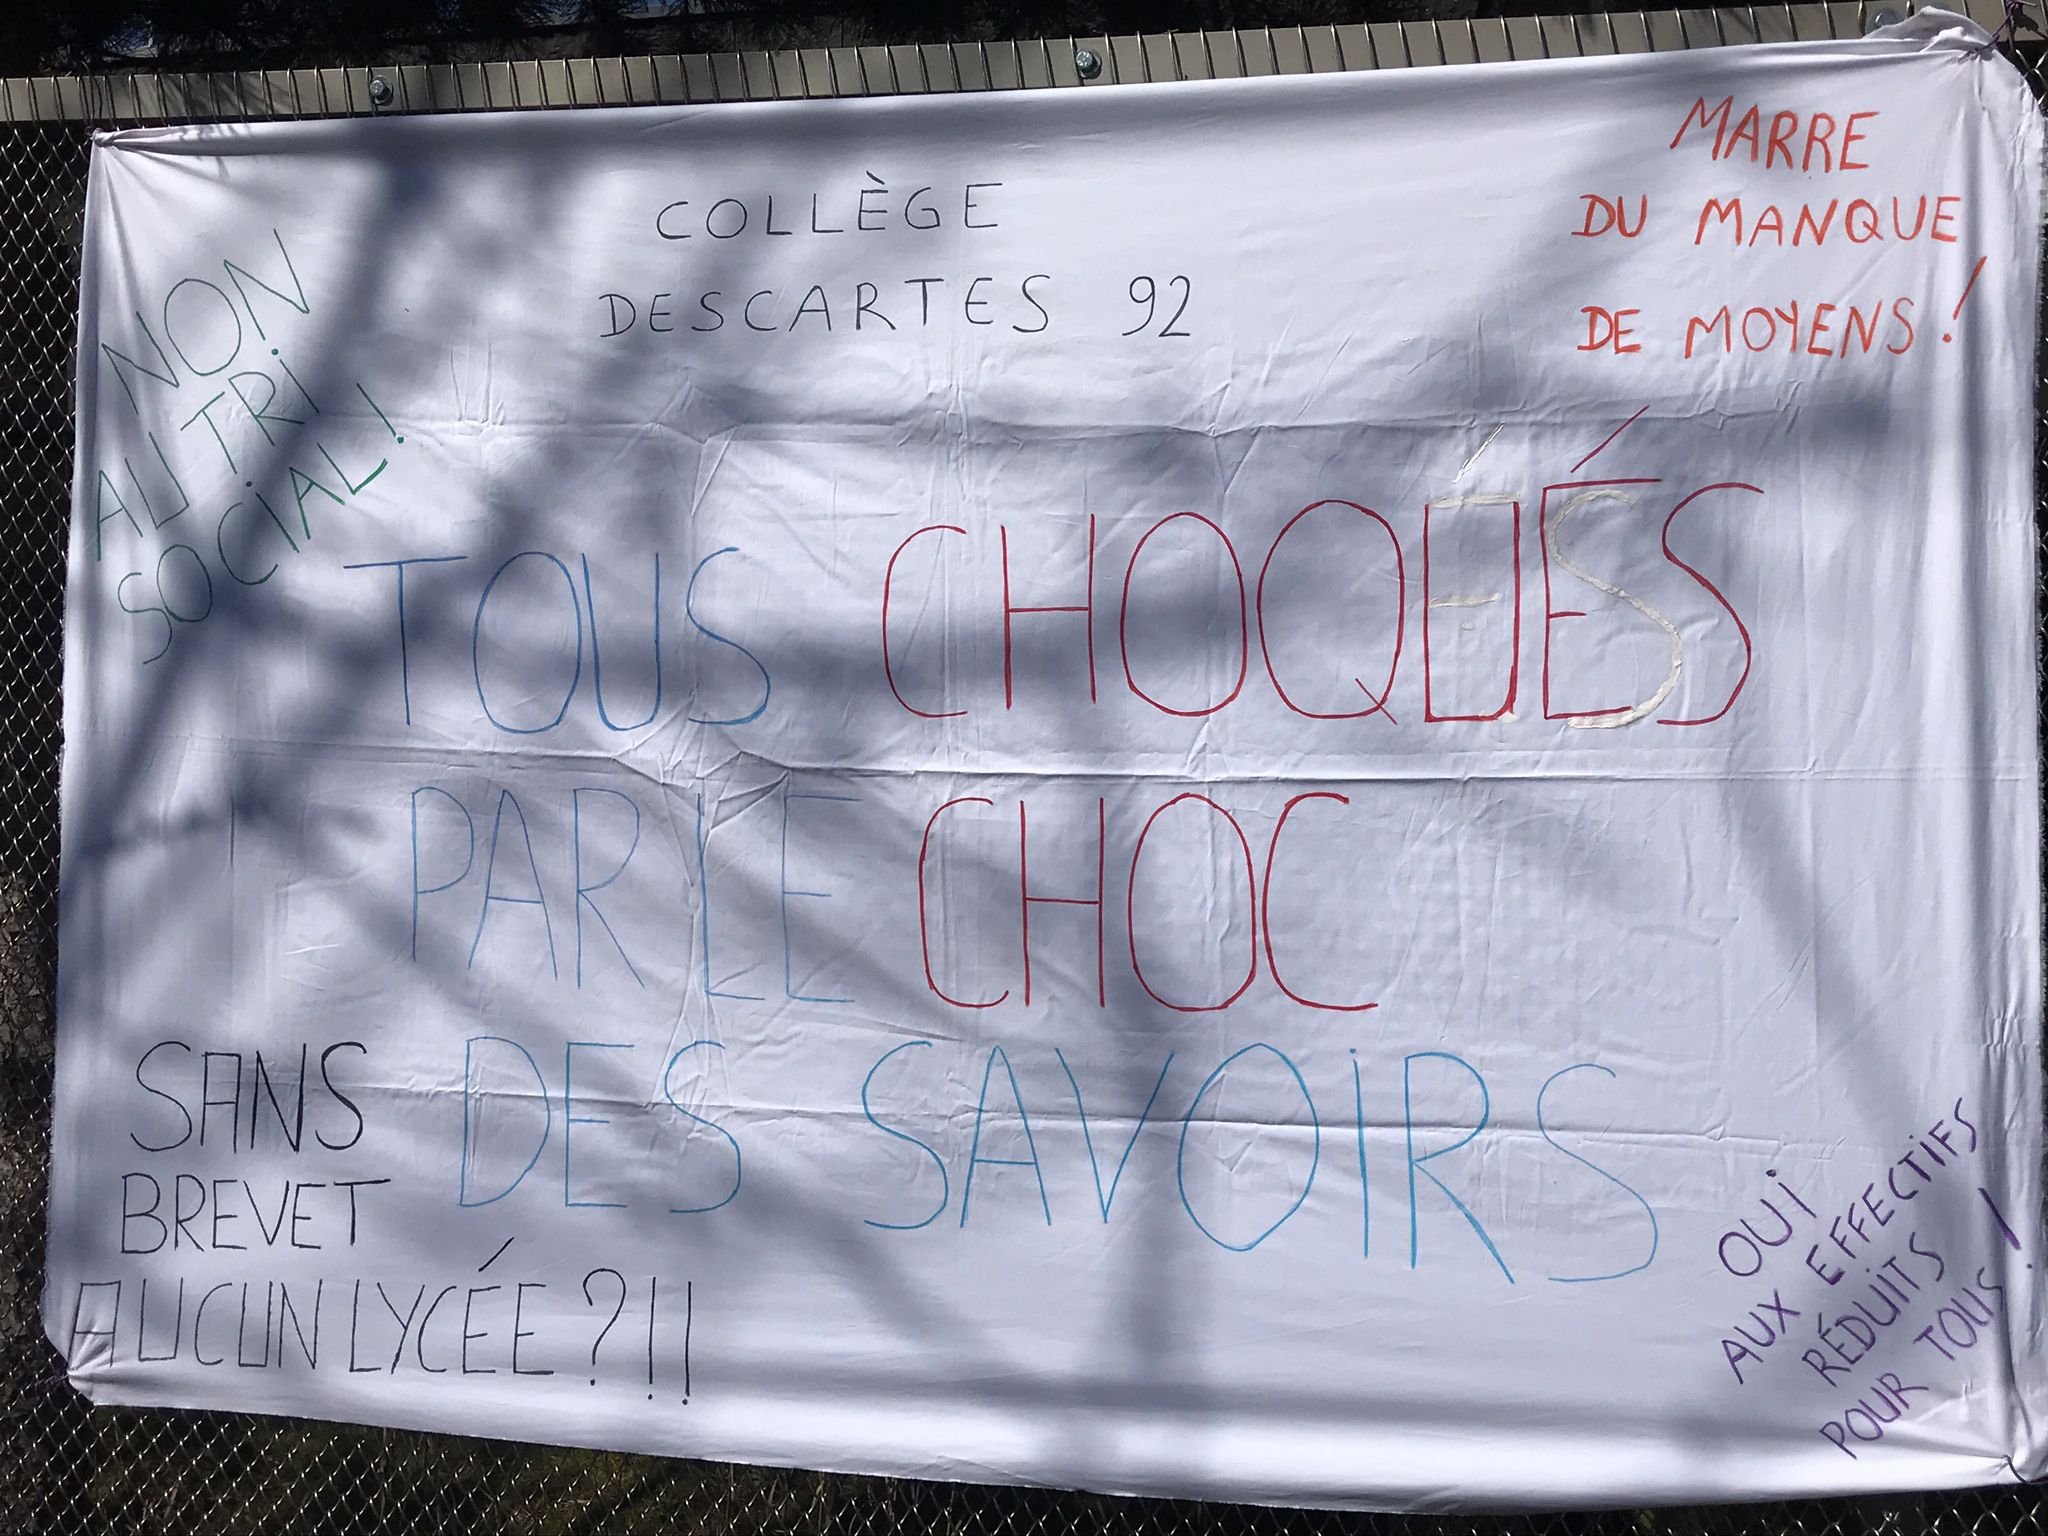 COLLÈGE
DESCARTES 92
MARRE
DU MANQUE
DE MOYENS !
NON
AU TRI
SOCIAL !
TOUS CHOQUÉS
PAR LE CHOC
DES SAVOIRS
SANS
BREVET
AUCUN LYCÉE ? !!
OUI
AUX EFFECTIFS
RÉDUITS
POUR TOUS !